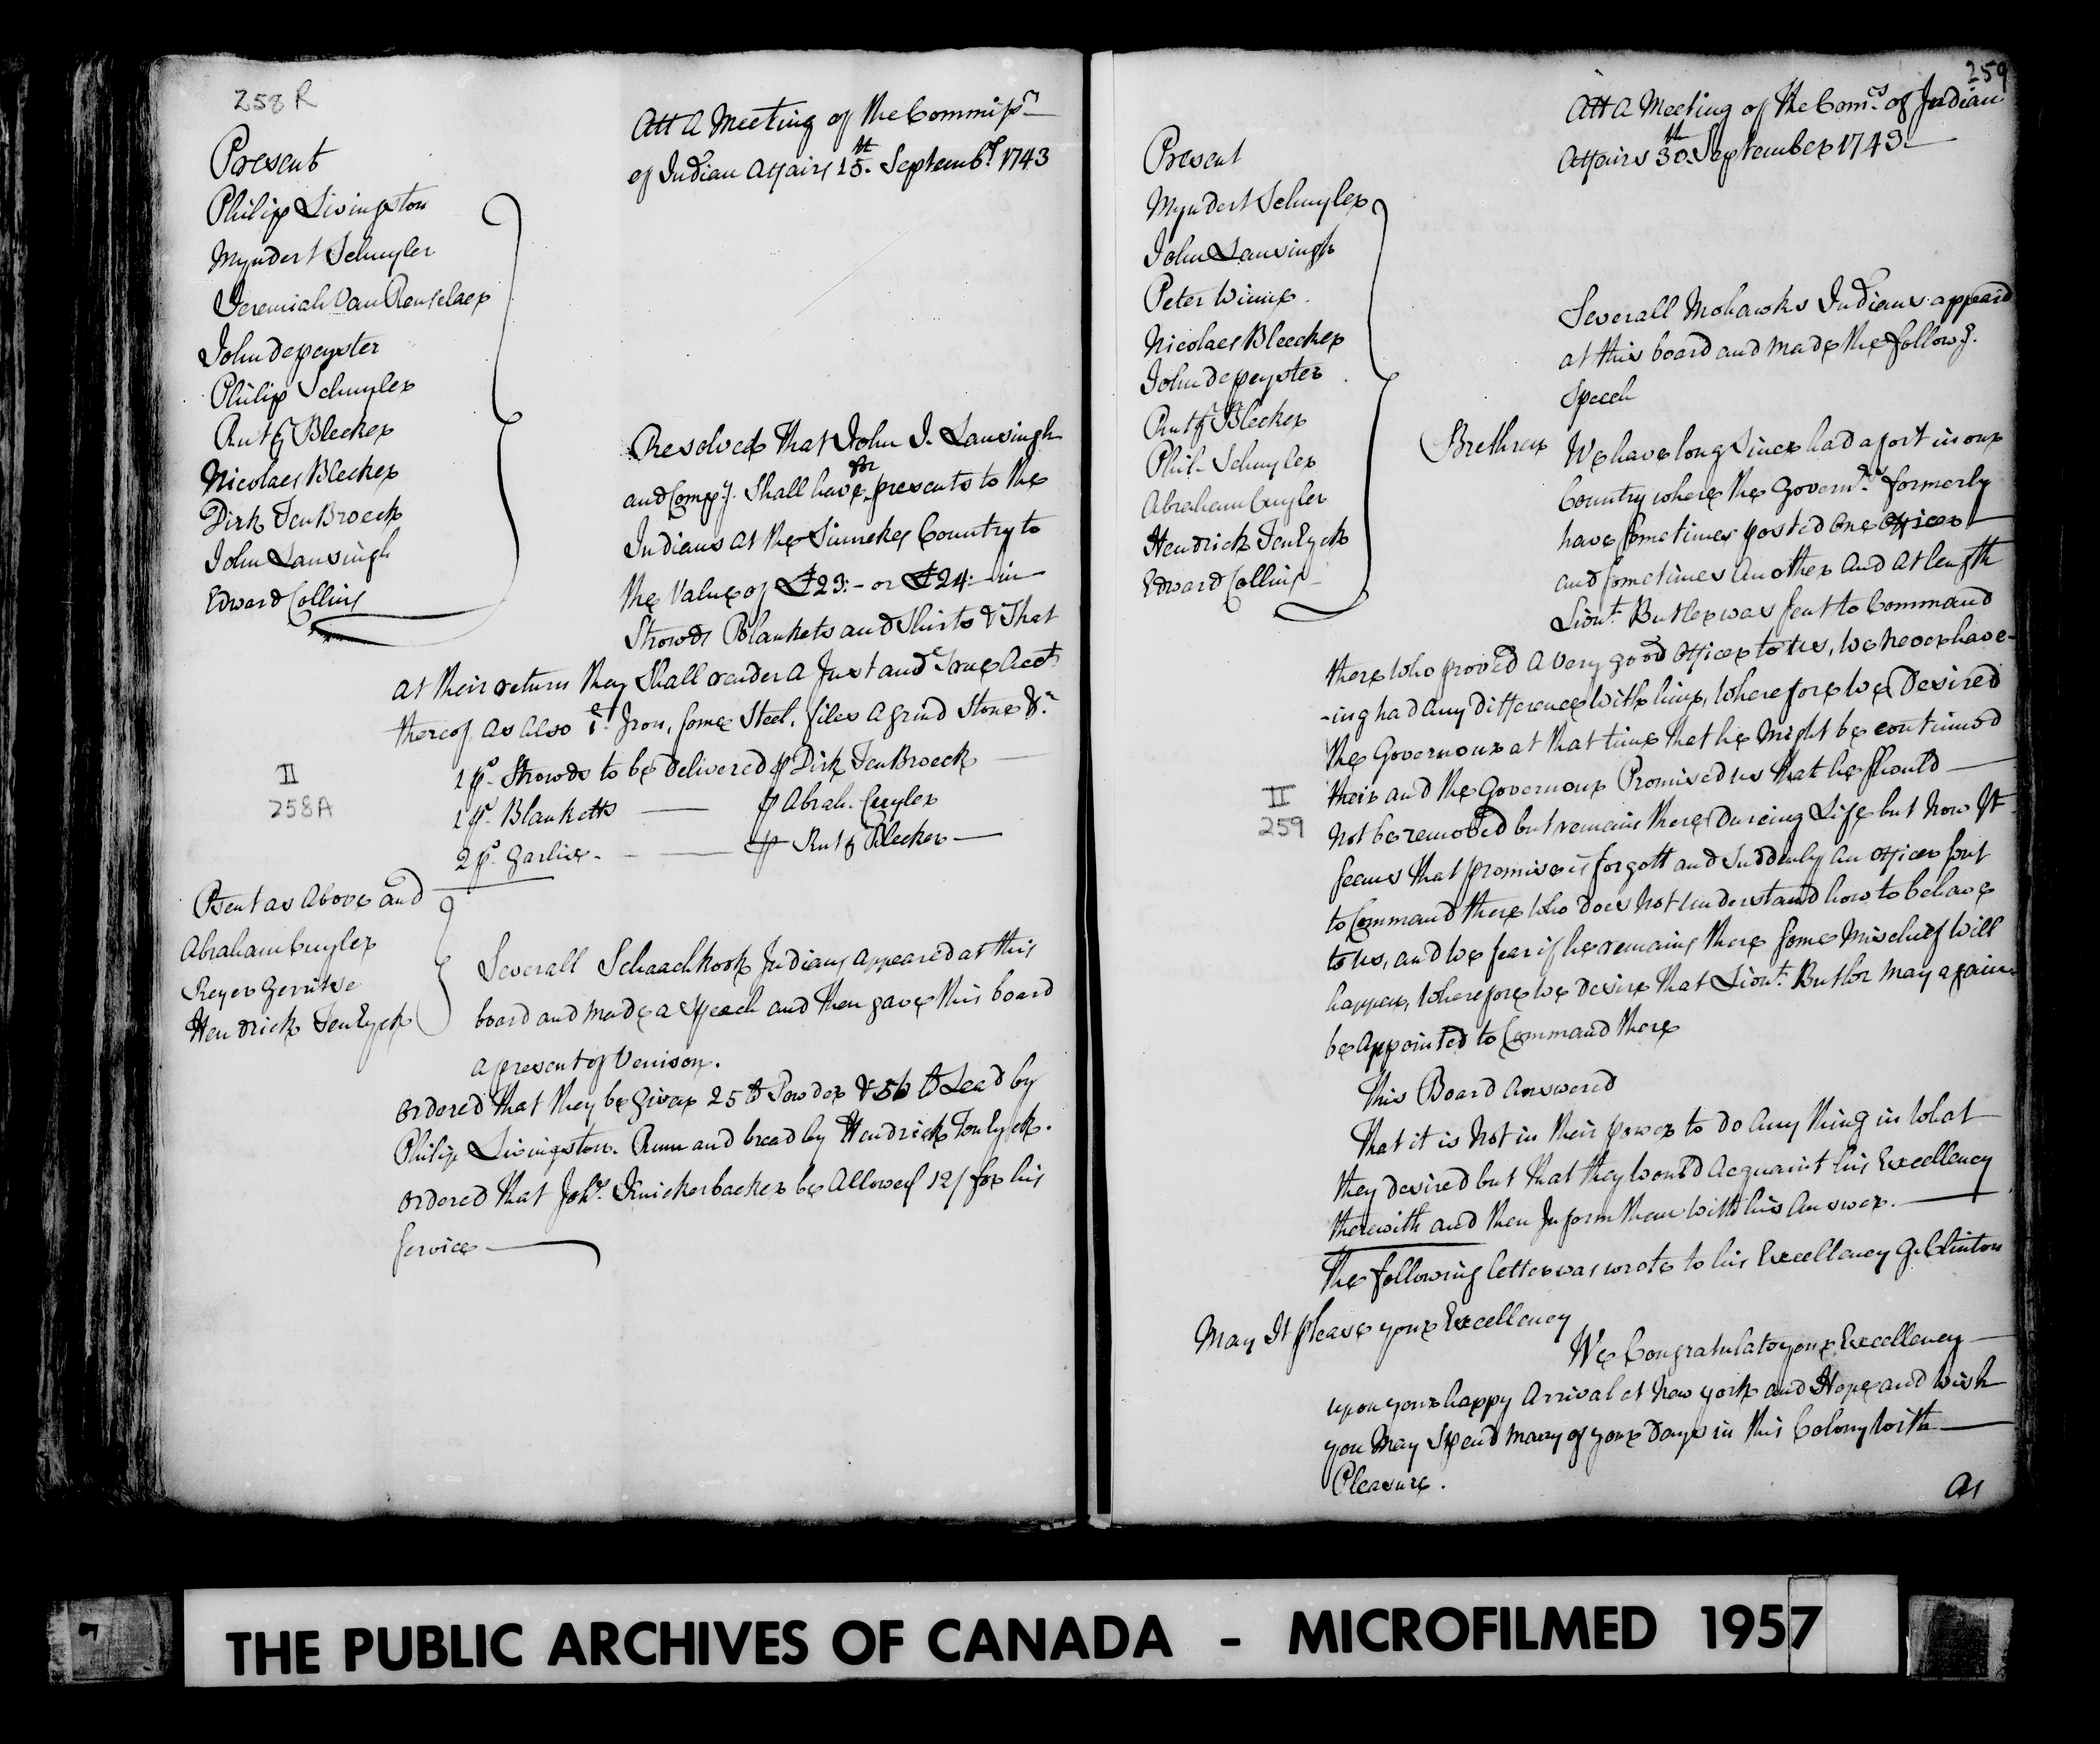 258 R
Att A Meeting of the Commiss.rs
of Indian Affairs 15.th Septemb.r 1743
Present
Philip Livingston
Myndert Schuyler
Jeremiah Van Renselaer
John depeyster
Philip Schuyler
Rutg Blecker
Nicolaes Blecker
Dirk TenBroeck
John Lansingh
Edward Collins
Resolved That John J. Lansingh
and Comp.y Shall have for presents to the
Indians at the Sinnekes Country to
the Value of £23:- or £24:- in
Strowds Blankets and Shirts & That
at their return they Shall render a Just and True Acct
thereof As Also Iron, Some Steel, files a Grind Stone &c
1 ps. Strowds to be Delivered ⅌ Dirk TenBroeck
1 ps. Blanketts ⅌ Abrah. Cuyler
2 ps. Garlix ⅌ Rutg Blecker
II
258A
Psent as Above and
Abraham Cuyler
Reyer Gerritse
Hendrick TenEyck
Severall Schaachkook Indians Appeared at this
board and made a Speech and then gave this board
a present of Venison.
Ordered that they be given 25 lb Powder & 56 lb Lead by
Philip Livingston. Rum and bread by Hendrick TenEyck.
Ordered that Joh.s Knickerbacker be Allowed 12/ for his
Service
259
Att A Meeting of the Com.rs of Indian
Affairs 30.th September 1743.
Present
Myndert Schuyler
John Lansingh
Peter Winne
Nicolaes Bleecker
John depeyster
Rutg Blecker
Phil. Schuyler
Abraham Cuyler
Hendrick TenEyck
Edward Collins
Severall Mohawks Indians appeard
at this board and made the follow.g
Speech
Brethren We have long Since had a fort in our
Country where the Govern.rs formerly
have Sometimes posted One Officer
and Sometimes Another And At length
Lieut. Butler was Sent to Command
there Who proved A Very good Officer to us, We never have-
-ing had Any difference With him, Wherefore We Desired
the Governour at that time that he Might be continued
their and the Governour Promised us that he Should
Not be removed but remain there Dureing Life but Now It
Seems that promise is forgott and Suddenly An Officer Sent
to Command there Who does Not understand how to behave
to us, and We fear if he remains there Some Mischief Will
happen, Wherefore We desire that Lieut. Butler May again
be Appointed to Command there
II
259
This Board Answered
That it is Not in their power to do Any thing in What
they desired but that they Would Acquaint his Excellency
therewith and then Inform them With his Answer.
The following letter was wrote to his Excellency G. Clinton
May It please your Excellency
We Congratulate your Excellency
upon your happy Arrival at New york and Hope and wish
you May Spend Many of your Days in this Colony With
Pleasure.
As
7
THE PUBLIC ARCHIVES OF CANADA - MICROFILMED 1957